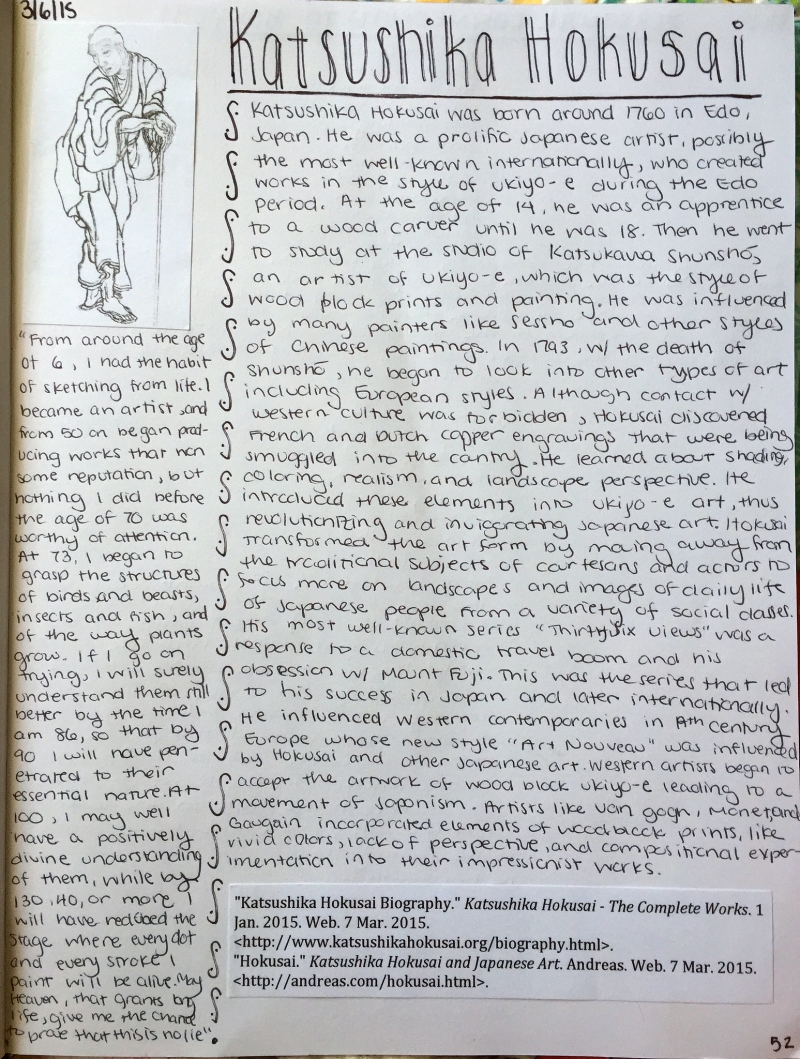 3/6/15
Katsushika Hokusai
Katsushika Hokusai was born around 1760 in Edo,
Japan. He was a prolific Japanese artist, possibly
the most well-known internationally, who created
works in the style of ukiyo-e during the Edo
period. At the age of 14, he was an apprentice
to a wood carver until he was 18. Then he went
to study at the studio of Katsukawa Shunshō,
an artist of ukiyo-e, which was the style of
wood block prints and painting. He was influenced
by many painters like Sessho and other styles
of Chinese paintings. In 1793, w/ the death of
Shunshō, he began to look into other types of art
including European styles. Although contact w/
western culture was forbidden, Hokusai discovered
French and Dutch copper engravings that were being
smuggled into the cantry. He learned about shading,
coloring, realism, and landscape perspective. He
introduced these elements into ukiyo-e art, thus
revolutionizing and invigorating Japanese art. Hokusai
transformed the art form by moving away from
the traditional subjects of courtesans and actors to
focus more on landscapes and images of daily life
of Japanese people from a variety of social classes.
His most well-known series "Thirty Six Views" was a
response to a domestic travel boom and his
obsession w/ Mount Fuji. This was the series that led
to his success in Japan and later internationally.
He influenced Western contemporaries in century
Europe whose new style "Art Nouveau" was influenced
by Hokusai and other Japanese art. Western artists began to
accept the artwork of wood block ukiyo-e leading to a
movement of Japonism. Artists like Van Gogh, Monet, and
Gaugain incorporated elements of woodblock prints, like
vivid colors, lack of perspective, and compositional exper-
imentation into their impressionist works.
"From around the age
of 6, I had the habit
of sketching from life. I
became an artist, and
from 50 on began prod-
ucing works that won
some reputation, but
nothing I did before
the age of 70 was
worthy of attention.
At 73, I began to
grasp the structures
of birds and beasts,
insects and fish, and
of the way plants
grow. If I go on
trying, I will surely
understand them still
better by the time I
am 86, so that by
90 I will have pen-
etrated to their
essential nature. At
100, I may well
have a positively
divine understanding
of them, while by
130, 40, or more I
will have reached the
stage where every dot
and every stroke I
paint will be alive. May
Heaven, that grants long
life, give me the chance
to prove that this is no lie".
"Katsushika Hokusai Biography." Katsushika Hokusai - The Complete Works. 1
Jan. 2015. Web. 7 Mar. 2015.
<http://www.katsushikahokusai.org/biography.html>.
"Hokusai." Katsushika Hokusai and Japanese Art. Andreas. Web. 7 Mar. 2015.
<http://andreas.com/hokusai.html>.
52